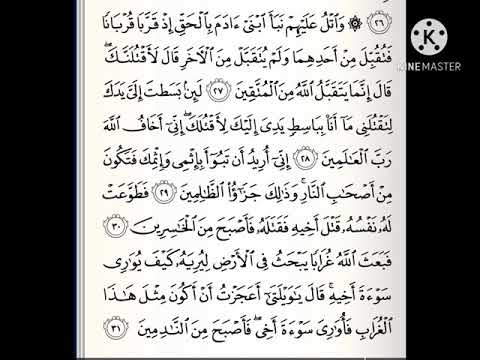 Made with
KINEMASTER
٢٦ ۞ وَٱتْلُ عَلَيْهِمْ نَبَأَ ٱبْنَىْ ءَادَمَ بِٱلْحَقِّ إِذْ قَرَّبَا قُرْبَانًا
فَتُقُبِّلَ مِنْ أَحَدِهِمَا وَلَمْ يُتَقَبَّلْ مِنَ ٱلْأَخَرِ قَالَ لَأَقْتُلَنَّكَۖ
قَالَ إِنَّمَا يَتَقَبَّلُ ٱللَّهُ مِنَ ٱلْمُتَّقِينَ ٢٧ لَئِنۢ بَسَطتَ إِلَىَّ يَدَكَ
لِتَقْتُلَنِى مَآ أَنَا۠ بِبَاسِطٍ يَدِىَ إِلَيْكَ لِأَقْتُلَكَۖ إِنِّىٓ أَخَافُ ٱللَّهَ
رَبَّ ٱلْعَـٰلَمِينَ ٢٨ إِنِّىٓ أُرِيدُ أَن تَبُوٓأَ بِإِثْمِى وَإِثْمِكَ فَتَكُونَ
مِنْ أَصْحَـٰبِ ٱلنَّارِۚ وَذَٰلِكَ جَزَٰٓؤُا۟ ٱلظَّـٰلِمِينَ ٢٩ فَطَوَّعَتْ
لَهُۥ نَفْسُهُۥ قَتْلَ أَخِيهِ فَقَتَلَهُۥ فَأَصْبَحَ مِنَ ٱلْخَـٰسِرِينَ ٣٠
فَبَعَثَ ٱللَّهُ غُرَابًا يَبْحَثُ فِى ٱلْأَرْضِ لِيُرِيَهُۥ كَيْفَ يُوَٰرِى
سَوْءَةَ أَخِيهِۚ قَالَ يَـٰوَيْلَتَىٰٓ أَعَجَزْتُ أَنْ أَكُونَ مِثْلَ هَـٰذَا
ٱلْغُرَابِ فَأُوَٰرِىَ سَوْءَةَ أَخِىۖ فَأَصْبَحَ مِنَ ٱلنَّـٰدِمِينَ ٣١